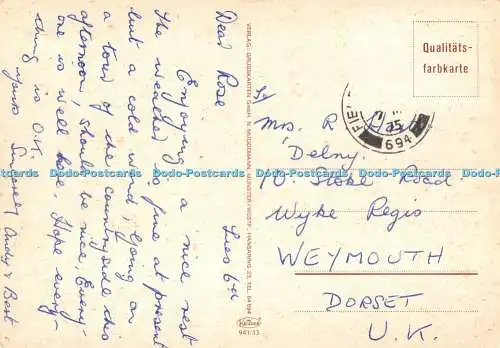 Lies 6-d
Dear Rose
Enjoying a nice rest
The weather is fine at present
but a cold wind. Going on
a tour of the countryside this
afternoon, should be nice. Every-
one is well here. Hope every-
thing is O.K.
yours Sincerely Andy & Bert
VERLAG: GRUSSKARTEN GMBH, MÜNSTER/WESTF., HANSARING 23, TEL. 64 094
Krüger
961/13
Qualitäts-
farbkarte
FIEL
25
694
Mrs. R
"Delny"
10 Stokel Road
Wyke Regis
WEYMOUTH
DORSET
U.K.
Dodo-Postcards Dodo-Postcards Dodo-Postcards Dodo-Postcards Dodo-Postcards Dodo-Postcards